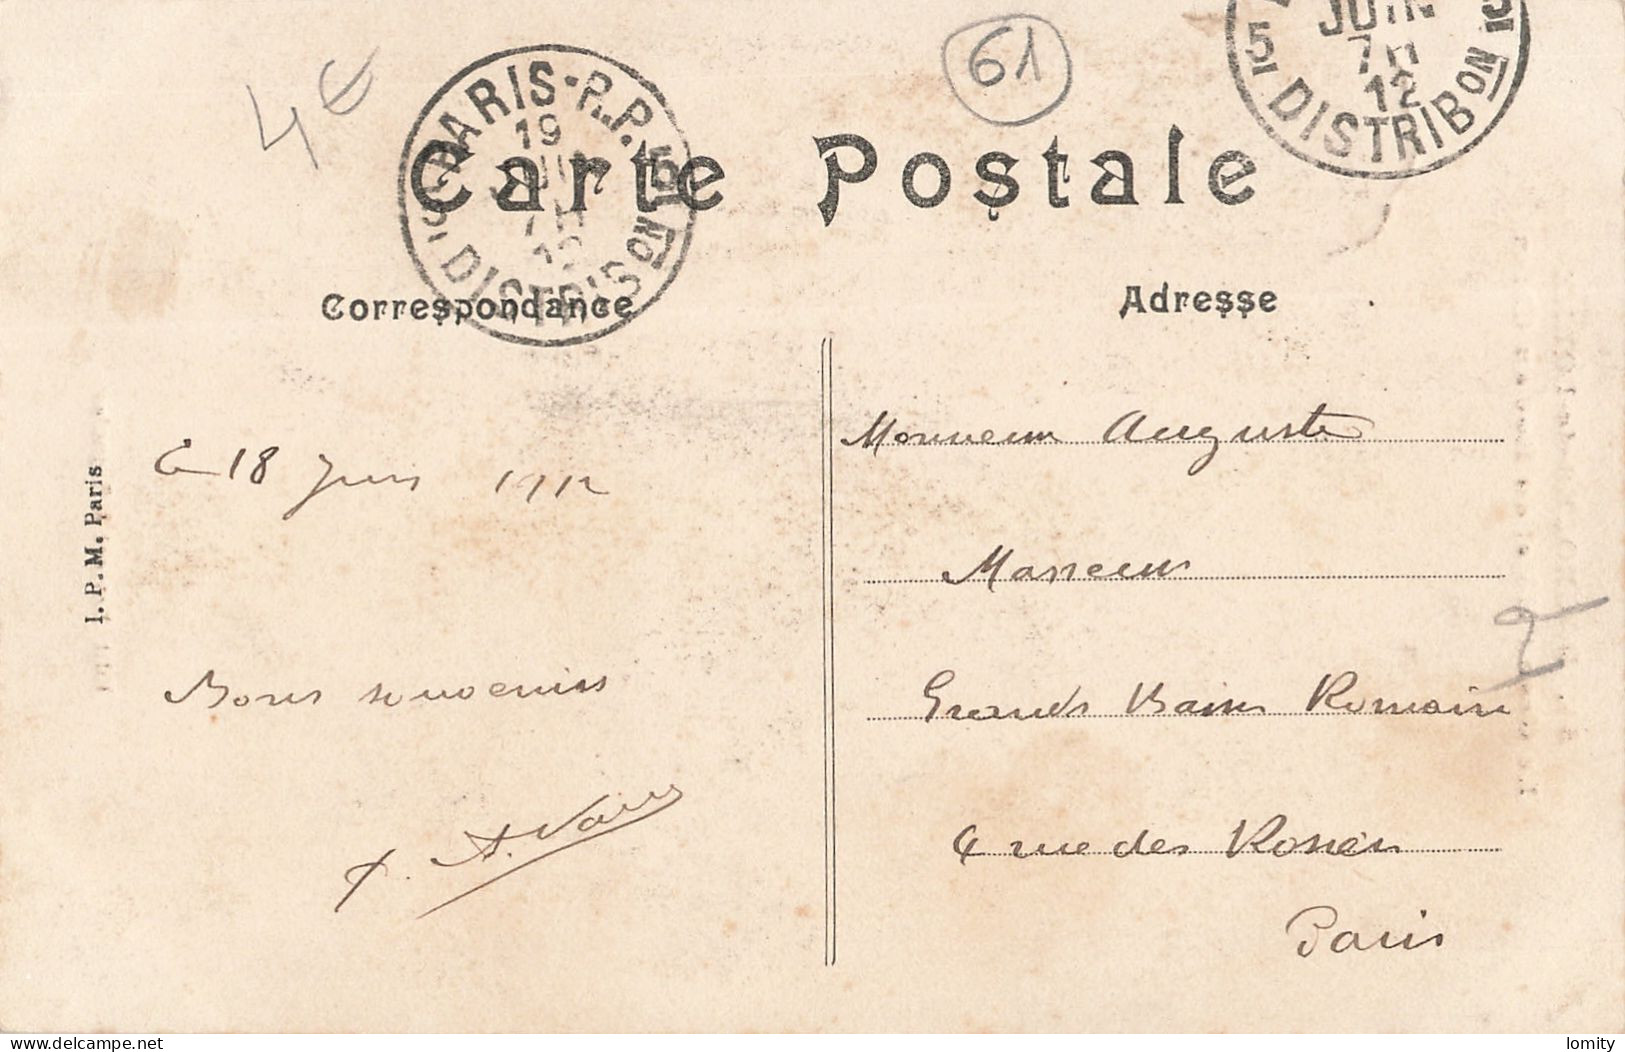 4€
61
PARIS-R.P.
19
JUIN
7H
12
DISTRIB
5E
JUIN
7H
12
5E DISTRIBON
Carte Postale
Correspondance
Adresse
I. P. M. Paris
Le 18 Juin 1912
Bons souvenirs
A.
Monsieur Auguste
Masseur
Grands Bains Romain
4 rue des Rosiers
Paris
Delcampe.net
lomity